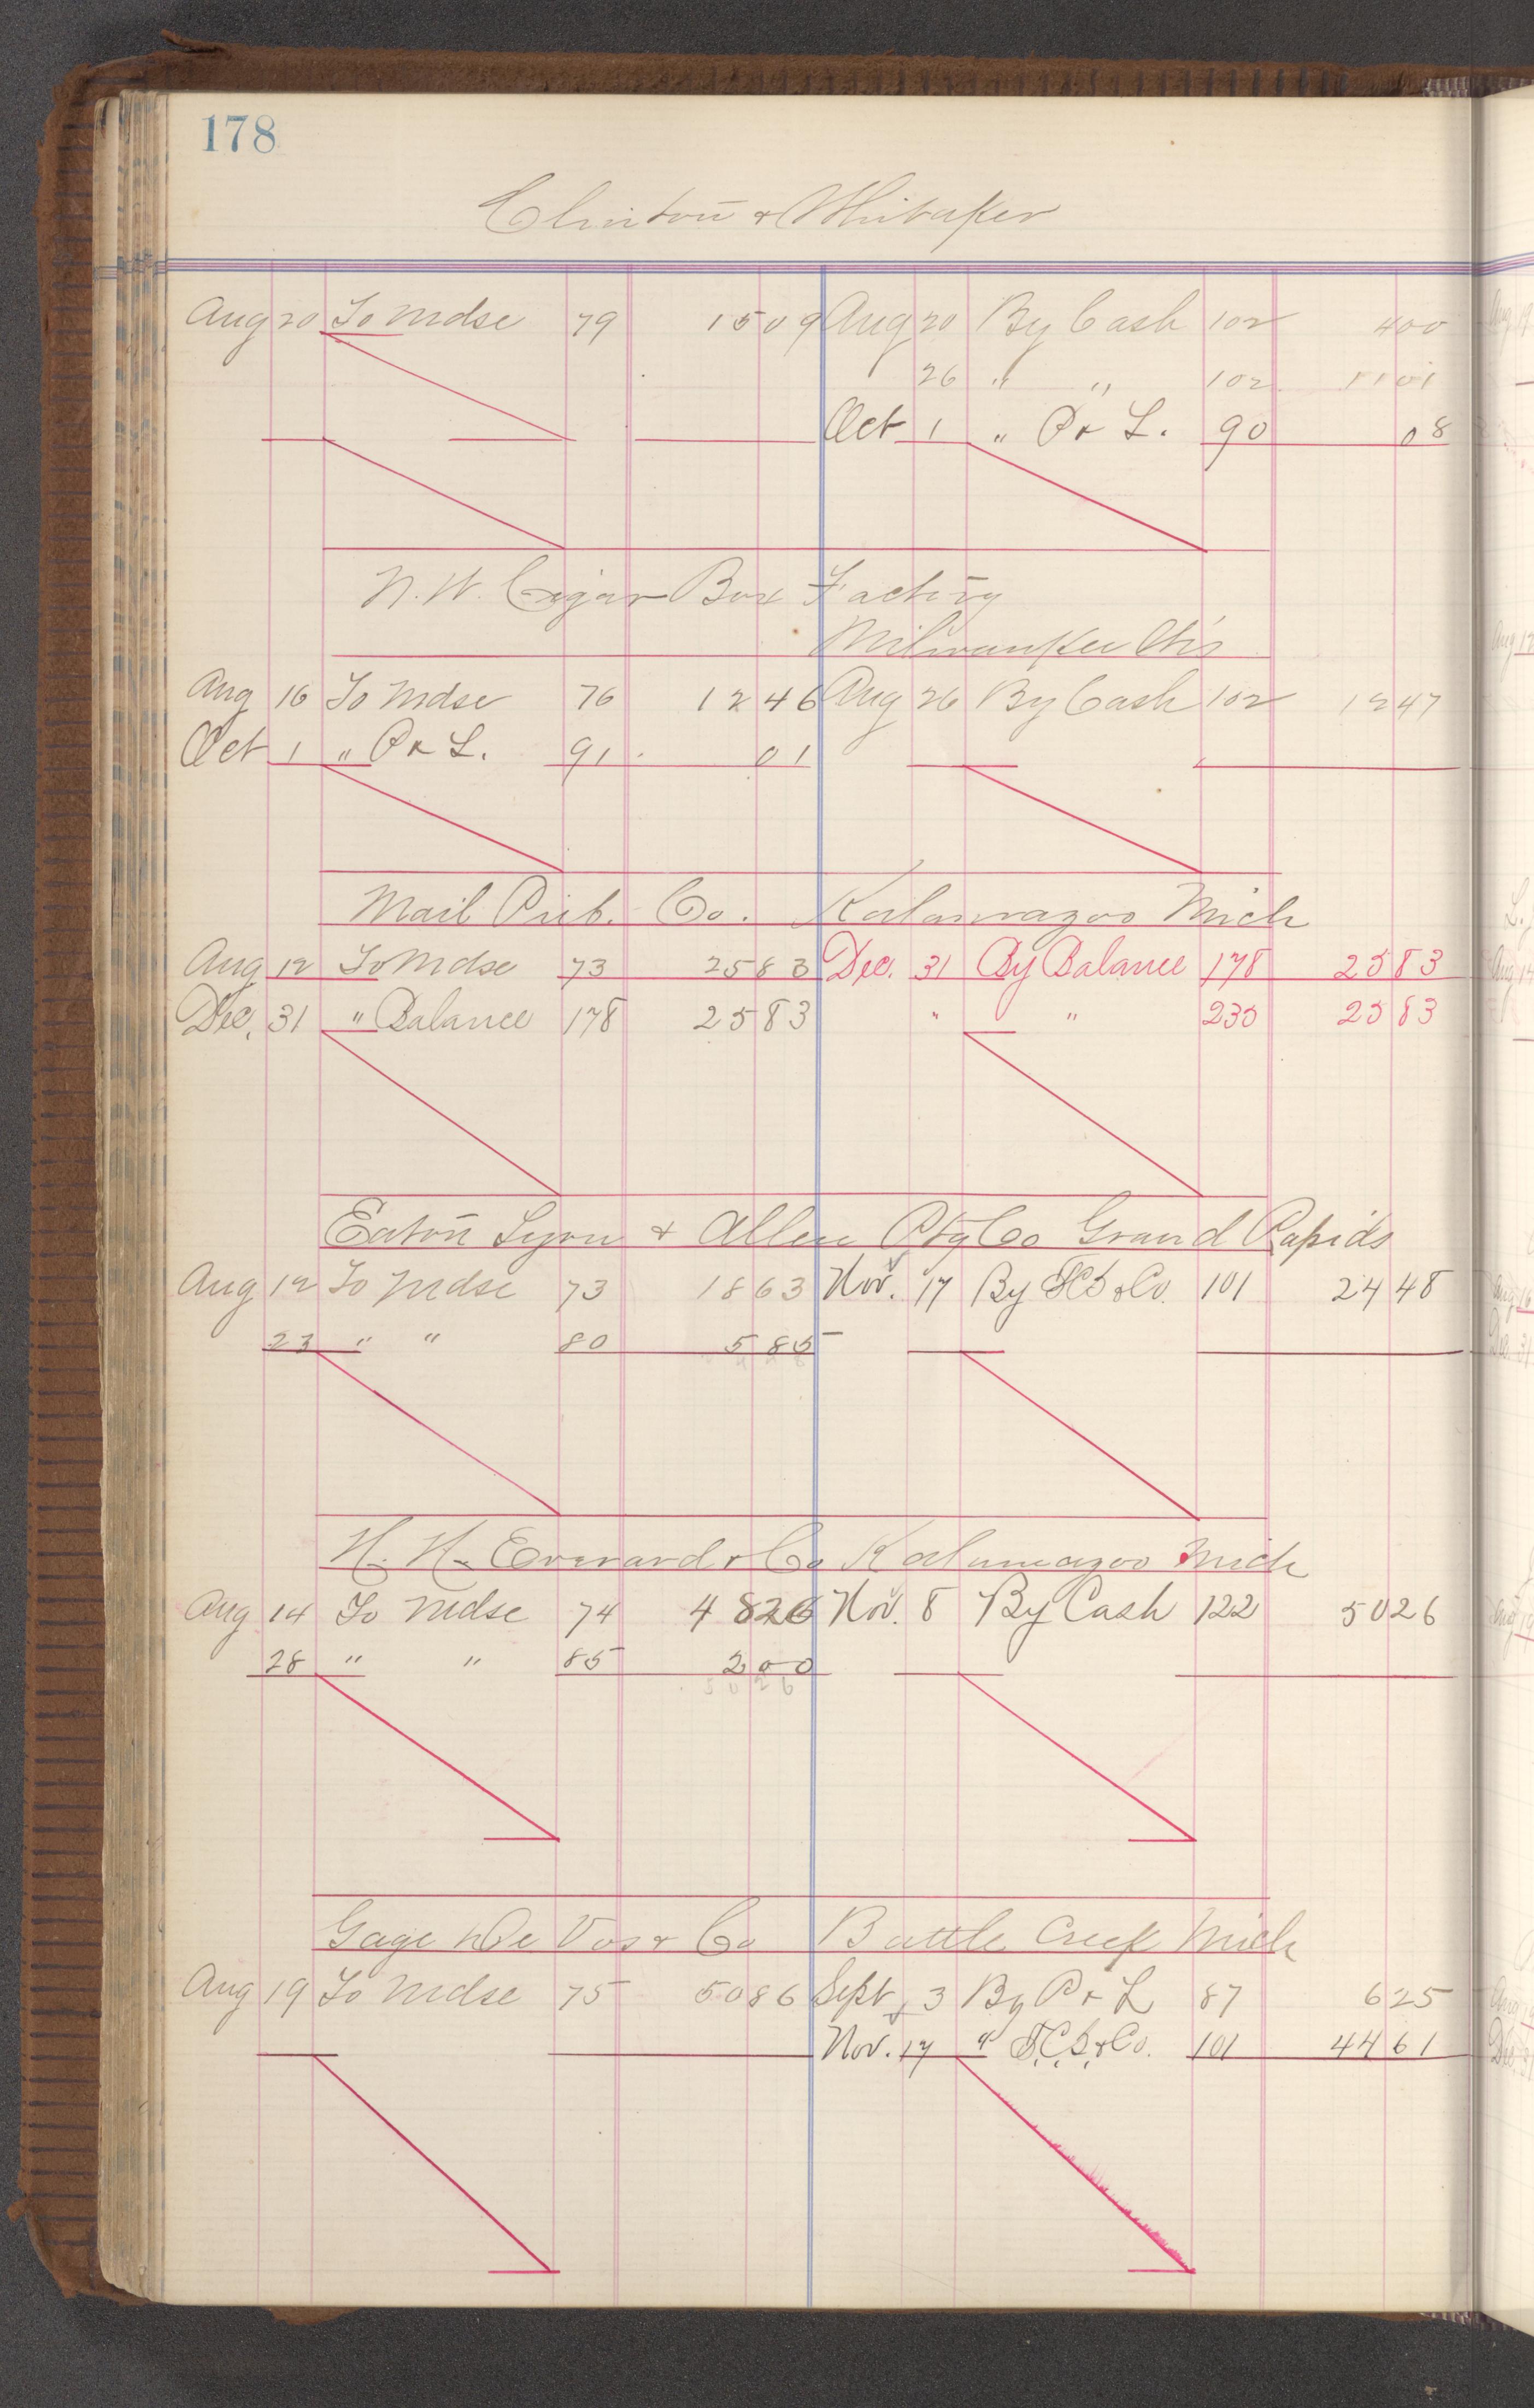 178
Clinton & Whitaker
Aug 20 To Mdse 79 15 09 Aug 20 By Cash 102 4 00
26 " " 102 11 01
Oct 1 " P & L. 90 08
N. W. Cigar Box Factory
Milwaukee Wis
Aug 16 To Mdse 76 12 46 Aug 26 By Cash 102 12 47
Oct 1 " P & L. 91 01
Mail Pub. Co. Kalamazoo Mich
Aug 12 To Mdse 73 25 83 Dec. 31 By Balance 178 25 83
Dec. 31 " Balance 178 25 83 " " 235 25 83
Eaton Lyon & Allen Ptg Co Grand Rapids
Aug 12 To Mdse 73 18 63 Nov. 17 By F.C.S. & Co. 101 24 48
23 " " 80 5 85
H. H. Everard & Co Kalamazoo Mich
Aug 14 To Mdse 74 48 26 Nov. 8 By Cash 122 50 26
28 " " 85 2 00
50 26
Gage De Vos & Co Battle Creek Mich
Aug 19 To Mdse 75 50 86 Sept 3 By P & L 87 6 25
Nov. 17 " F.C.S. & Co. 101 44 61